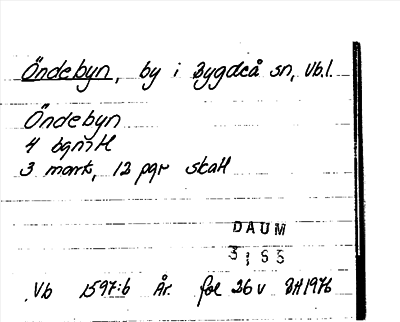 Öndebyn, by i Bygdeå sn, Vb.l.
Öndebyn
4 bgnītl
3 mark, 12 pgr skatt
DAUM
3; S S
Vb 1597:6 År. fol 26 v GH 1976